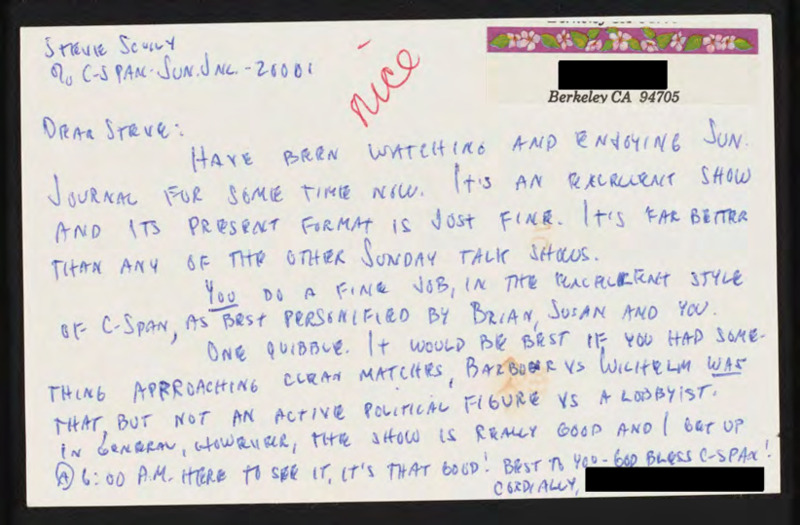 Berkeley CA 94705
nice
STEVE SCULLY
% C-SPAN-SUN.JNL.-20001
DEAR STEVE:
HAVE BEEN WATCHING AND ENJOYING SUN.
JOURNAL FOR SOME TIME NOW. IT'S AN EXCELLENT SHOW
AND ITS PRESENT FORMAT IS JUST FINE. IT'S FAR BETTER
THAN ANY OF THE OTHER SUNDAY TALK SHOWS.
YOU DO A FINE JOB, IN THE EXCELLENT STYLE
OF C-SPAN, AS BEST PERSONIFIED BY BRIAN, SUSAN AND YOU.
ONE QUIBBLE. IT WOULD BE BEST IF YOU HAD SOME-
THING APPROACHING CLEAN MATCHES, BARBOUR VS WILHELM WAS
THAT, BUT NOT AN ACTIVE POLITICAL FIGURE VS A LOBBYIST.
IN GENERAL, HOWEVER, THE SHOW IS REALLY GOOD AND I GET UP
@ 6:00 A.M. HERE TO SEE IT, IT'S THAT GOOD! BEST TO YOU-GOD BLESS C-SPAN!
CORDIALLY,